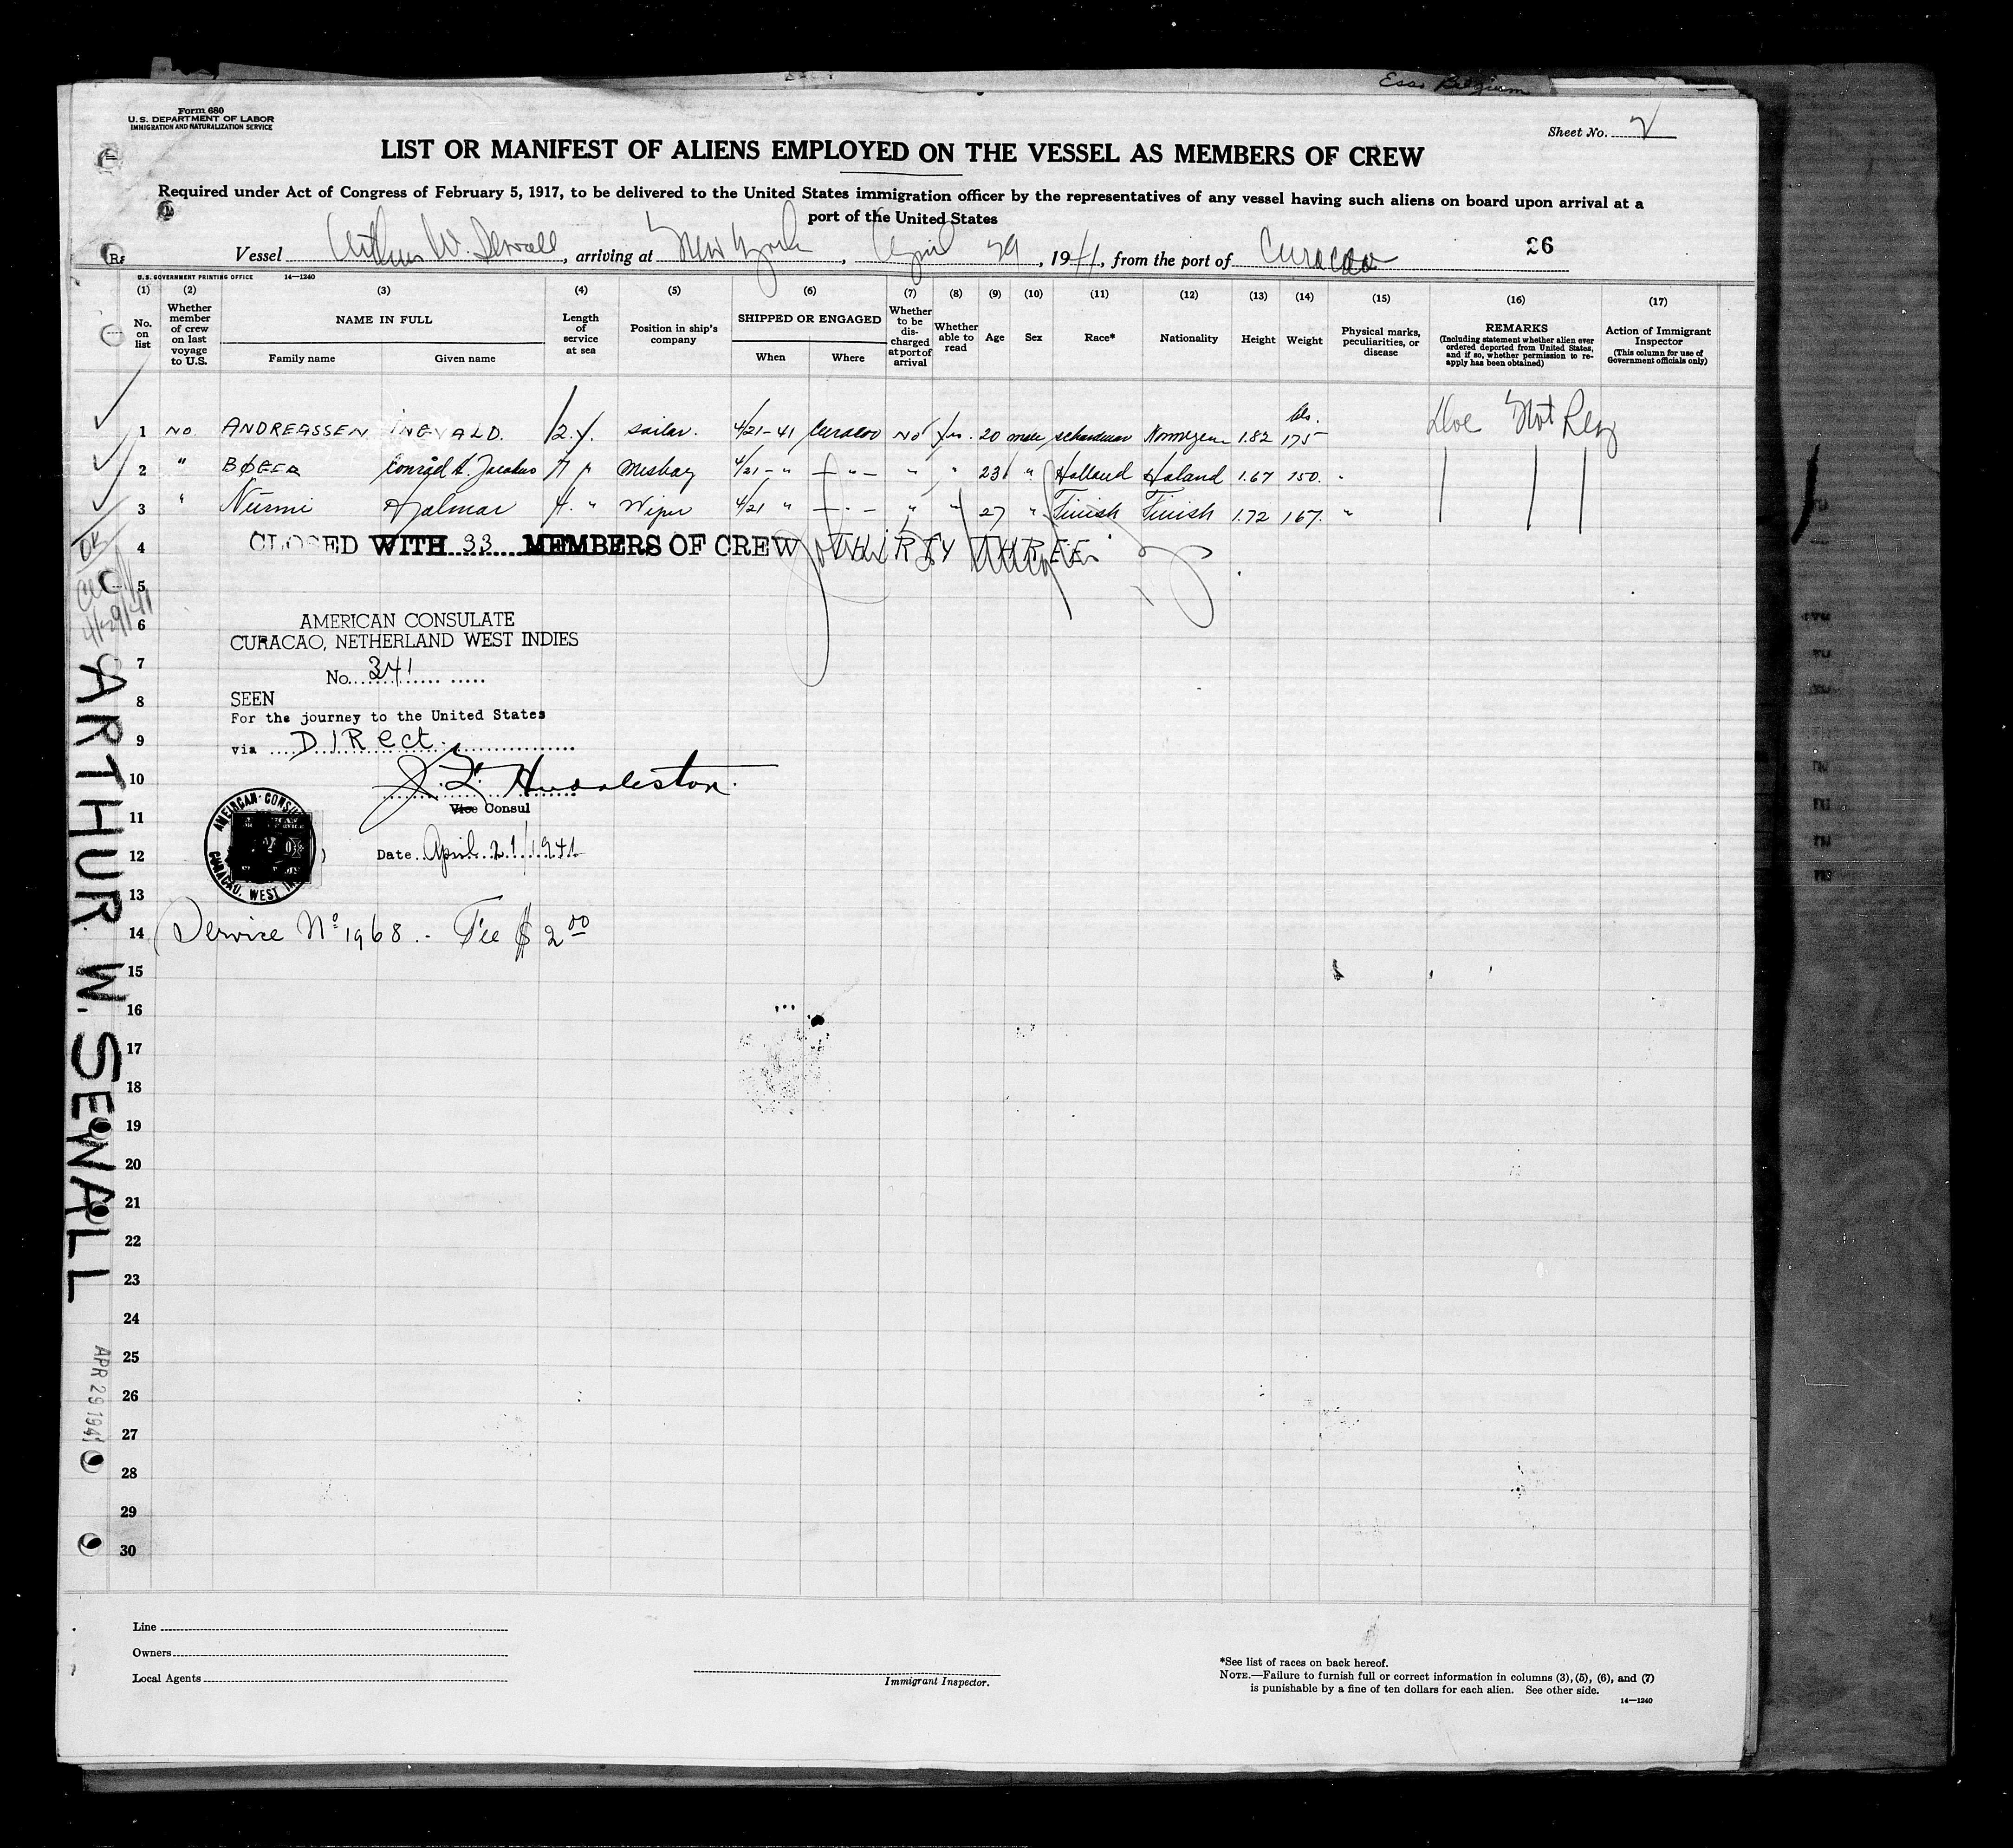 Esso Belgium
Form 680
U.S. DEPARTMENT OF LABOR
IMMIGRATION AND NATURALIZATION SERVICE
Sheet No. 2
LIST OR MANIFEST OF ALIENS EMPLOYED ON THE VESSEL AS MEMBERS OF CREW
Required under Act of Congress of February 5, 1917, to be delivered to the United States immigration officer by the representatives of any vessel having such aliens on board upon arrival at a
port of the United States
Vessel Arthur W. Sewall, arriving at New York, April 29, 1941, from the port of Curacao
26
U.S. GOVERNMENT PRINTING OFFICE 14—1240
(1) (2) (3) (4) (5) (6) (7) (8) (9) (10) (11) (12) (13) (14) (15) (16) (17)
No. on list
Whether member of crew on last voyage to U.S.
NAME IN FULL
Family name
Given name
Length of service at sea
Position in ship's company
SHIPPED OR ENGAGED
When
Where
Whether to be discharged at port of arrival
Whether able to read
Age
Sex
Race*
Nationality
Height
Weight
Physical marks, peculiarities, or disease
REMARKS
(Including statement whether alien ever ordered deported from United States, and if so, whether permission to reapply has been obtained)
Action of Immigrant Inspector
(This column for use of Government officials only)
1 No. ANDREASSEN INGVALD. 2.y. sailor. 4/21-41 Curacao No yes. 20 male Norwegian 1.82 lbs. 175
2 " Conrad A. Jacobus 7 " Mesboy 4/21-" -"- " " 23 " Holland Holand 1.67 150. "
3 " Nurmi Hjalmar 4. " Wiper 4/21 " -"- " " 27 " Finish Finish 1.72 167. "
Not
4 CLOSED WITH 33 MEMBERS OF CREW THIRTY THREE
OK
4/29/41
5
6 AMERICAN CONSULATE
CURACAO, NETHERLAND WEST INDIES
7 No. 341
8 SEEN
For the journey to the United States
9 via DIRect
10 J. L. Huddleston
Vice Consul
11
AMERICAN CONSU
CURACAO, WEST IN
12 Date April 21, 1941
13
14 Service No 1968.- Fee $2.00
15
16
17
18
19
20
21
22
23
24
25
26
27
28
29
30
ARTHUR W. SEWALL
APR 29 1941
Line
Owners
Local Agents
Immigrant Inspector.
*See list of races on back hereof.
NOTE.—Failure to furnish full or correct information in columns (3), (5), (6), and (7)
is punishable by a fine of ten dollars for each alien. See other side.
14—1240